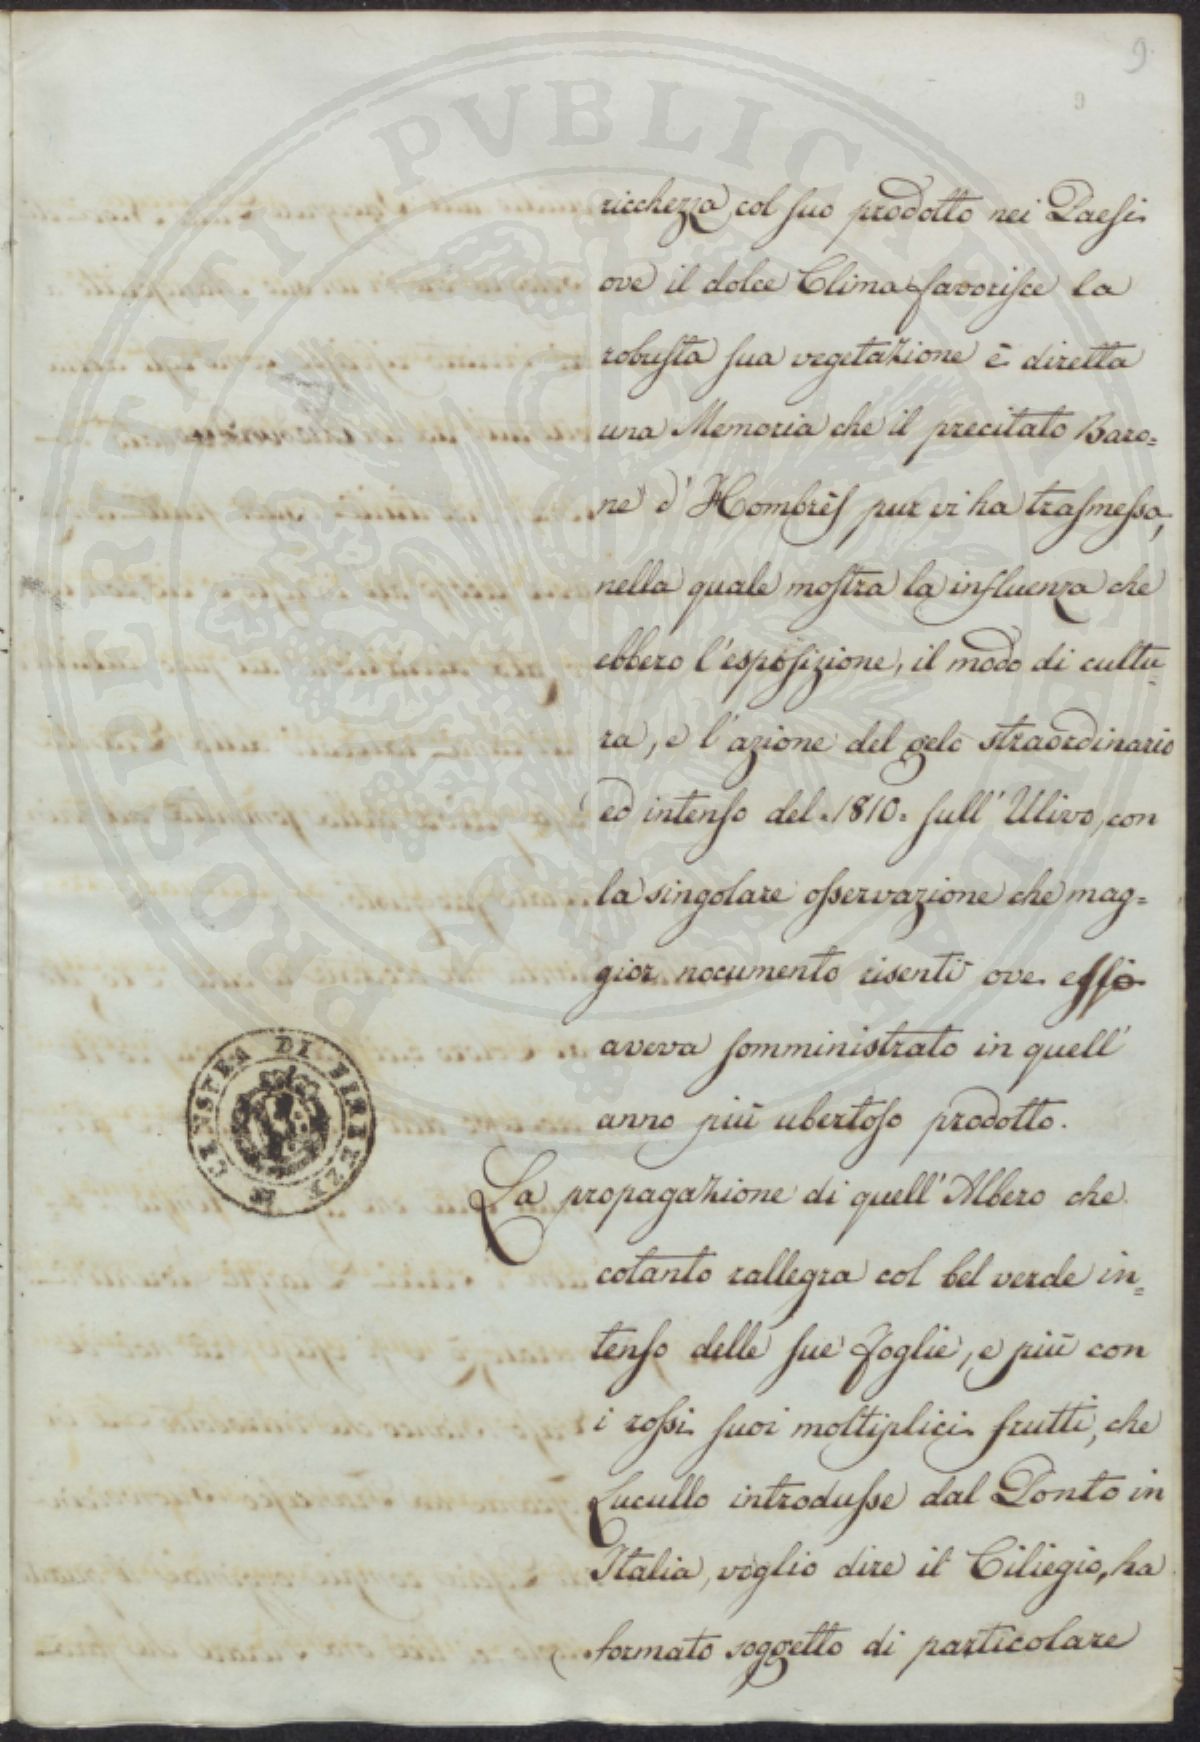 9.
9
ricchezza col suo prodotto nei Paesi
ove il dolce Clima favorisce la
robusta sua vegetazione è diretta
una Memoria che il precitato Baro=
ne d'Hombrès pur vi ha trasmessa,
nella quale mostra la influenza che
ebbero l'esposizione, il modo di cultu=
ra, e l'azione del gelo straordinario
ed intenso del =1810= sull'Ulivo, con
la singolare osservazione che mag=
gior nocumento risentì ove esso
aveva somministrato in quell'
anno più ubertoso prodotto.
La propagazione di quell'Albero che
cotanto rallegra col bel verde in=
tenso delle sue foglie, e più con
i rossi suoi moltiplici frutti, che
Lucullo introdusse dal Ponto in
Italia, voglio dire il Ciliegio, ha
formato soggetto di particolare
PROSPERITATI PVBLICAE AVGENDAE